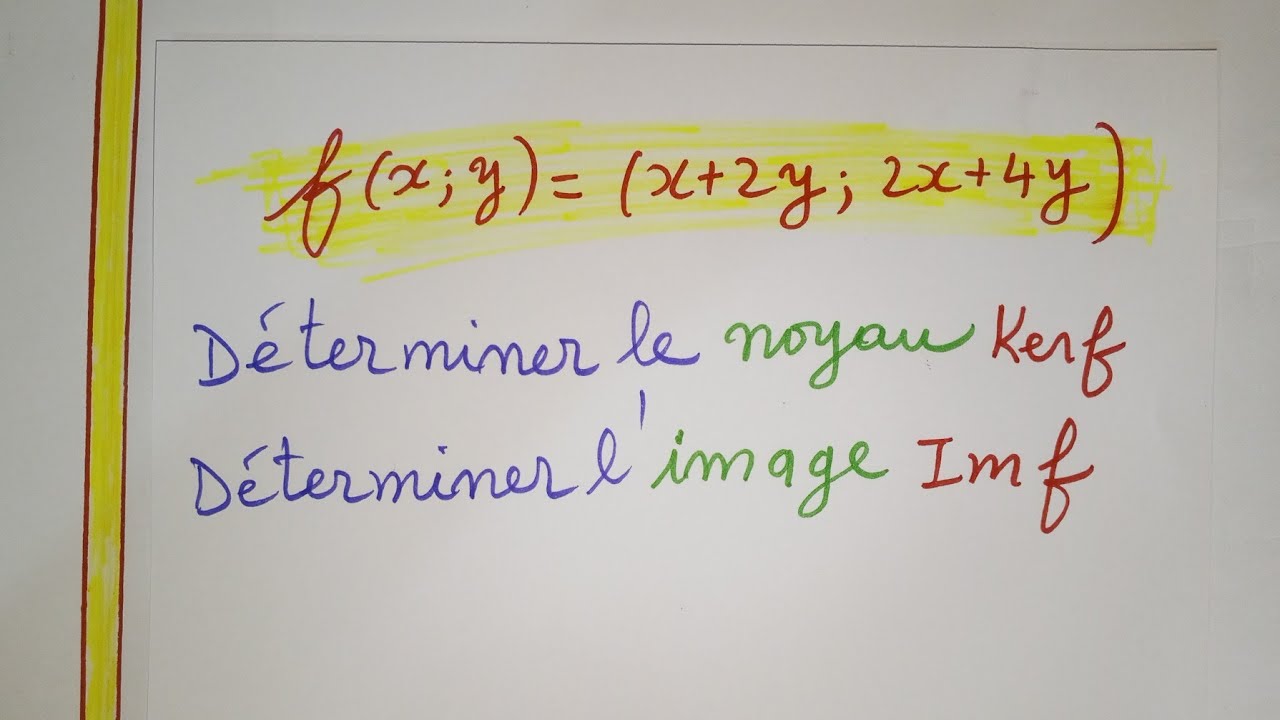 f(x;y)=(x+2y; 2x+4y)
Déterminer le noyau Kerf
Déterminer l'image Imf